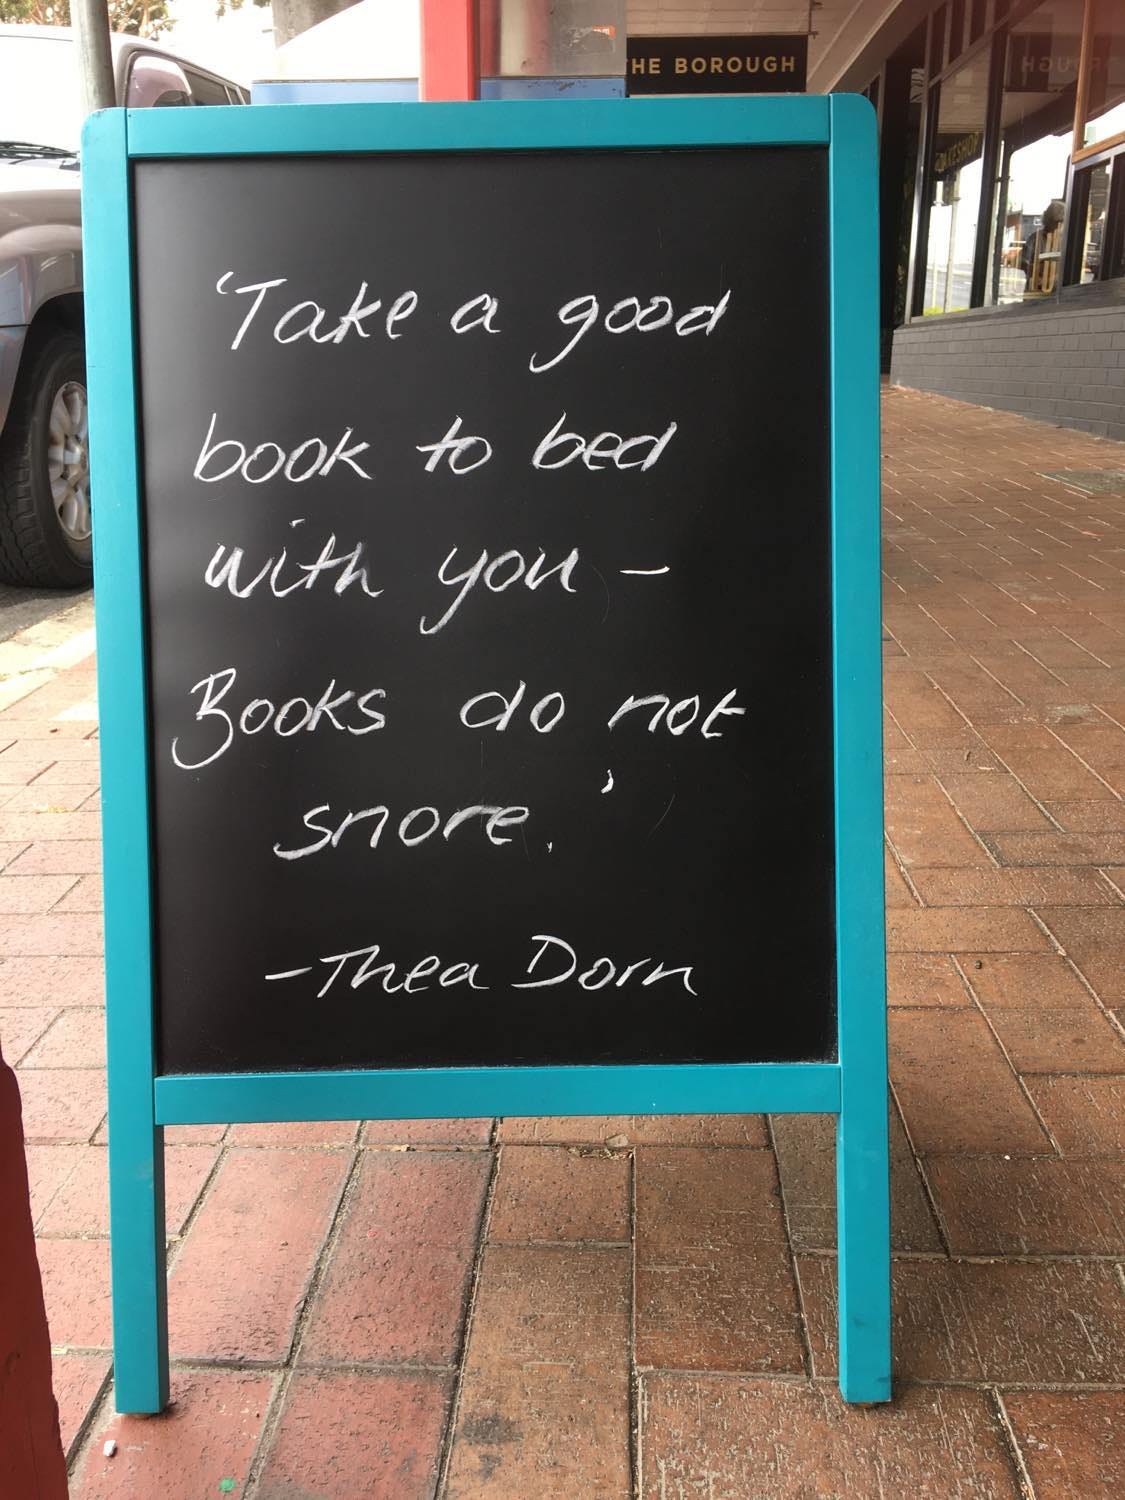 HE BOROUGH
'Take a good
book to bed
with you -
Books do not
snore.'
- Thea Dorn